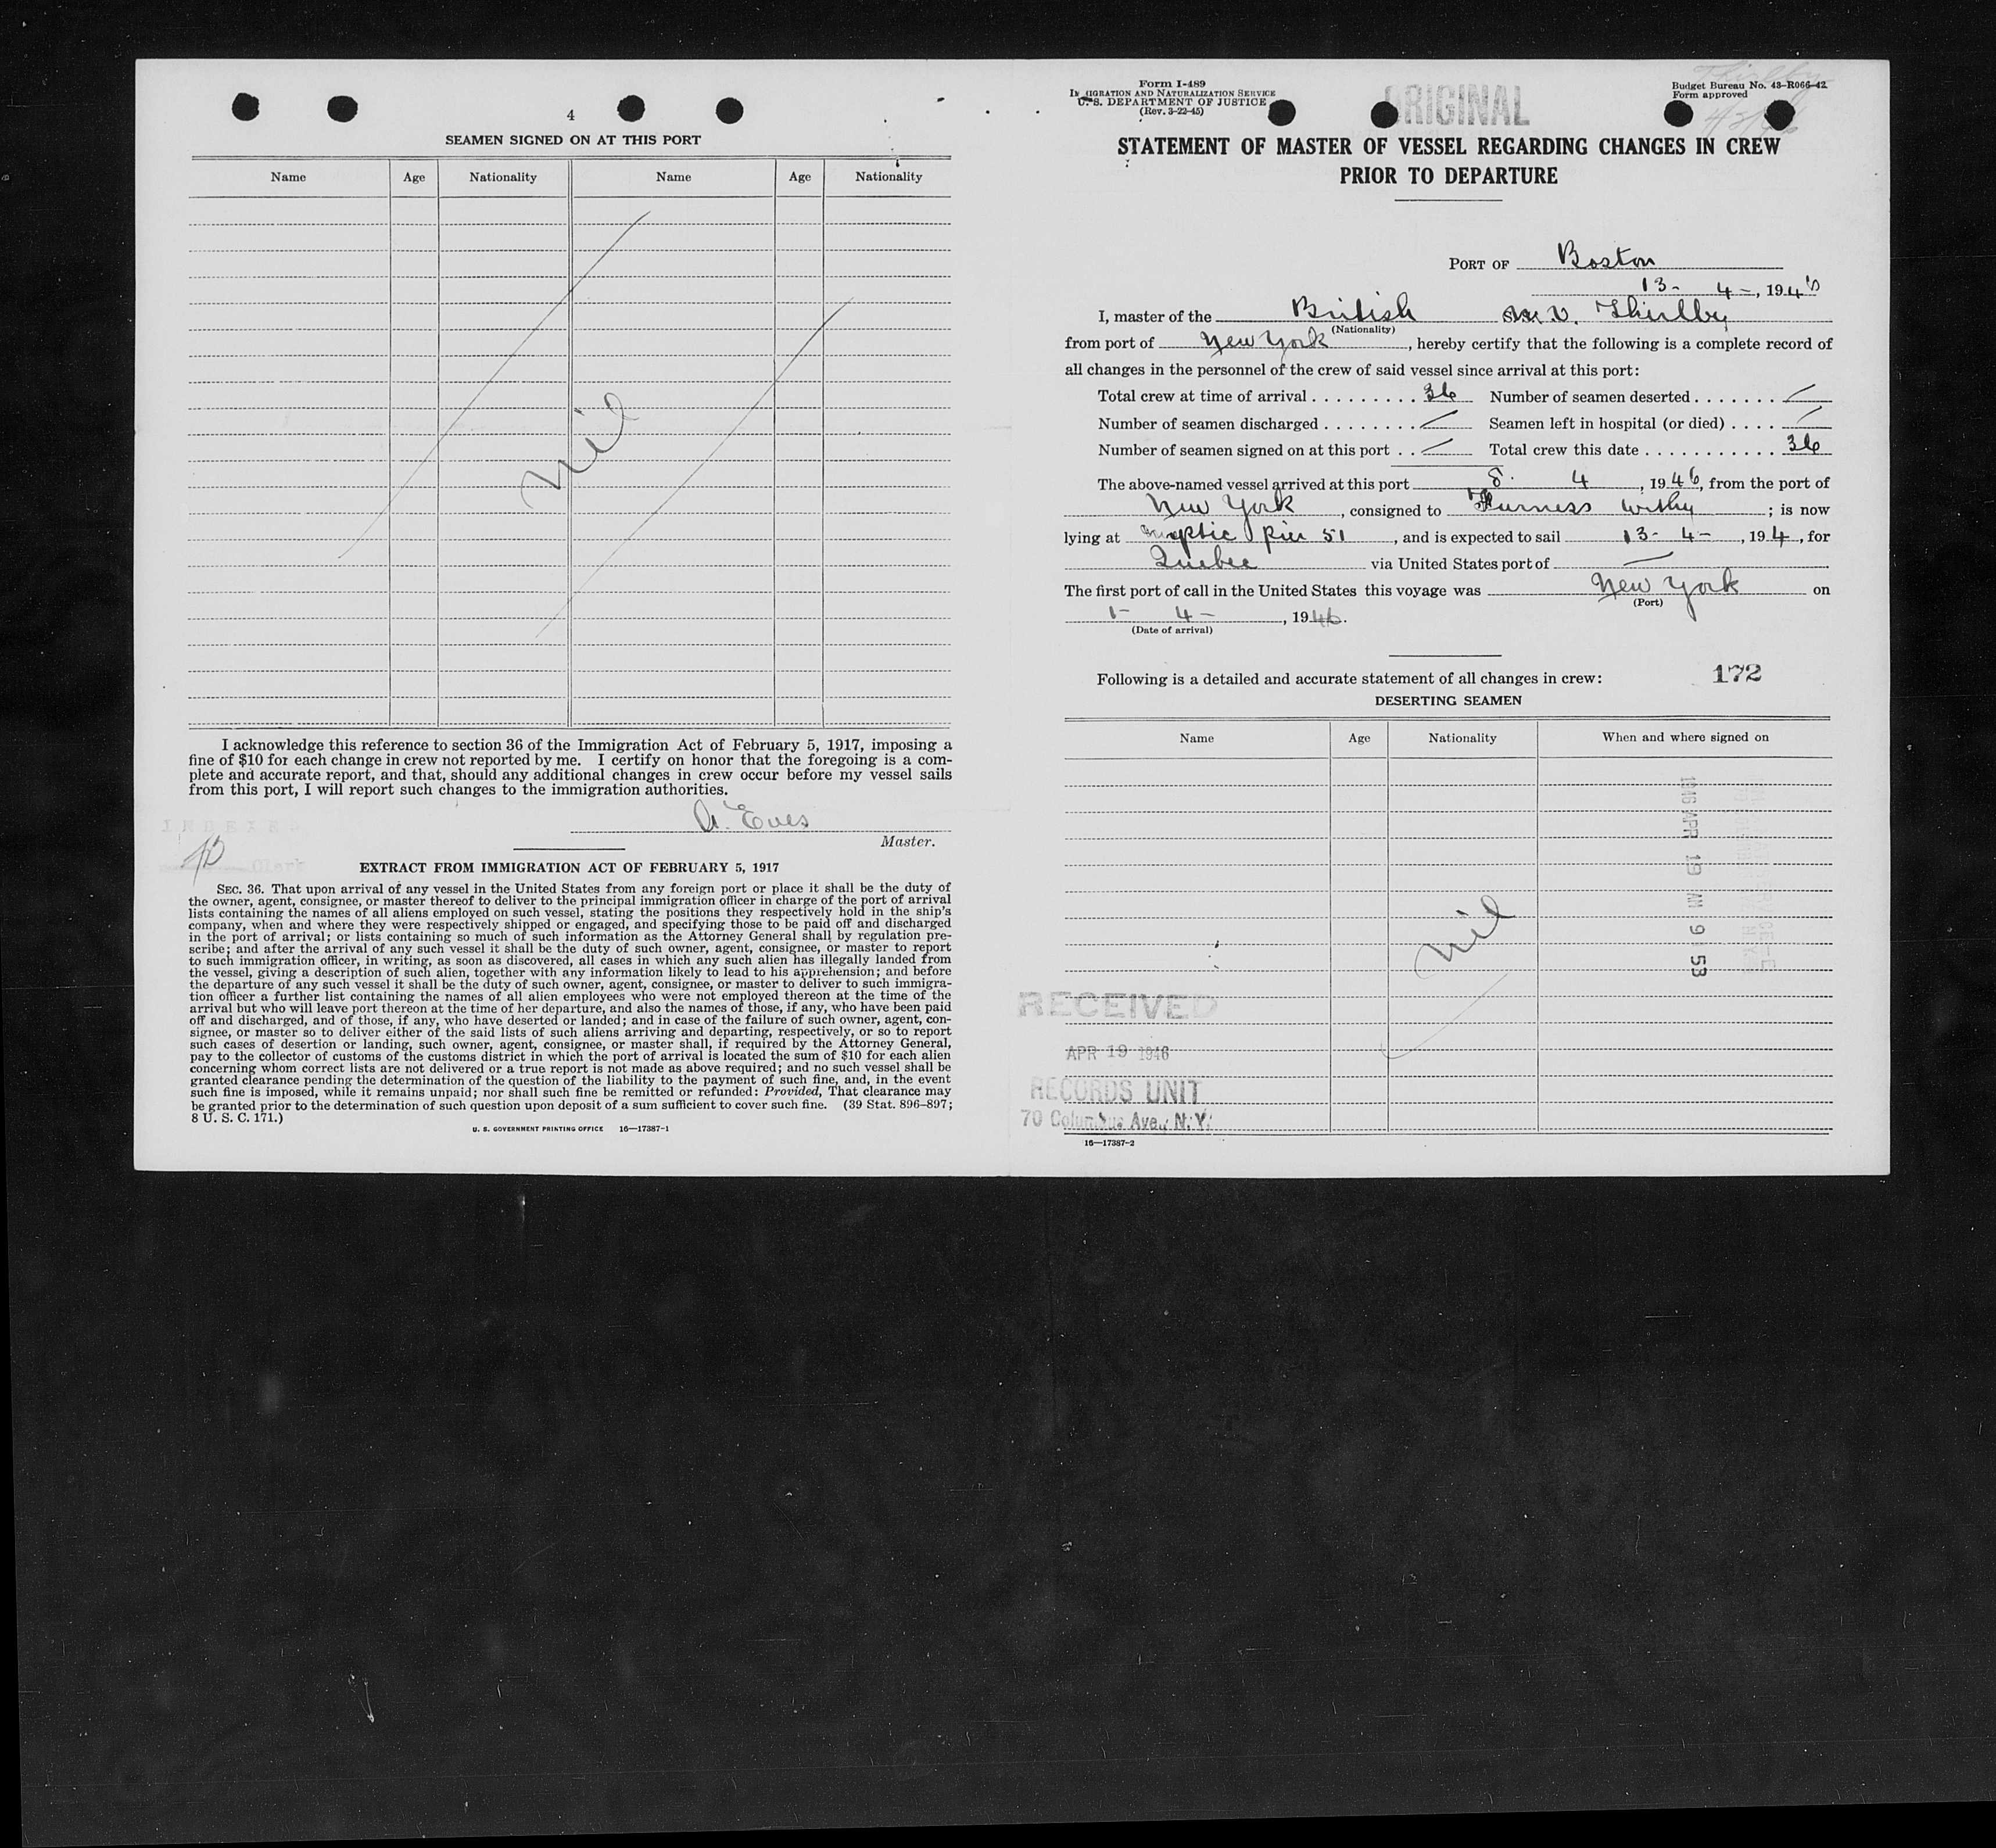 4
SEAMEN SIGNED ON AT THIS PORT
Name Age Nationality Name Age Nationality
Nil
I acknowledge this reference to section 36 of the Immigration Act of February 5, 1917, imposing a
fine of $10 for each change in crew not reported by me. I certify on honor that the foregoing is a com-
plete and accurate report, and that, should any additional changes in crew occur before my vessel sails
from this port, I will report such changes to the immigration authorities.
A. Eves
Master.
INDEXED
Clerk
EXTRACT FROM IMMIGRATION ACT OF FEBRUARY 5, 1917
SEC. 36. That upon arrival of any vessel in the United States from any foreign port or place it shall be the duty of
the owner, agent, consignee, or master thereof to deliver to the principal immigration officer in charge of the port of arrival
lists containing the names of all aliens employed on such vessel, stating the positions they respectively hold in the ship's
company, when and where they were respectively shipped or engaged, and specifying those to be paid off and discharged
in the port of arrival; or lists containing so much of such information as the Attorney General shall by regulation pre-
scribe; and after the arrival of any such vessel it shall be the duty of such owner, agent, consignee, or master to report
to such immigration officer, in writing, as soon as discovered, all cases in which any such alien has illegally landed from
the vessel, giving a description of such alien, together with any information likely to lead to his apprehension; and before
the departure of any such vessel it shall be the duty of such owner, agent, consignee, or master to deliver to such immigra-
tion officer a further list containing the names of all alien employees who were not employed thereon at the time of the
arrival but who will leave port thereon at the time of her departure, and also the names of those, if any, who have been paid
off and discharged, and of those, if any, who have deserted or landed; and in case of the failure of such owner, agent, con-
signee, or master so to deliver either of the said lists of such aliens arriving and departing, respectively, or so to report
such cases of desertion or landing, such owner, agent, consignee, or master shall, if required by the Attorney General,
pay to the collector of customs of the customs district in which the port of arrival is located the sum of $10 for each alien
concerning whom correct lists are not delivered or a true report is not made as above required; and no such vessel shall be
granted clearance pending the determination of the question of the liability to the payment of such fine, and, in the event
such fine is imposed, while it remains unpaid; nor shall such fine be remitted or refunded: Provided, That clearance may
be granted prior to the determination of such question upon deposit of a sum sufficient to cover such fine. (39 Stat. 896–897;
8 U. S. C. 171.)
U. S. GOVERNMENT PRINTING OFFICE 16—17387-1
Form I-489
IMMIGRATION AND NATURALIZATION SERVICE
U. S. DEPARTMENT OF JUSTICE
(Rev. 3-22-45)
ORIGINAL
Budget Bureau No. 43–R066–42
Form approved
STATEMENT OF MASTER OF VESSEL REGARDING CHANGES IN CREW
PRIOR TO DEPARTURE
PORT OF Boston
13- 4-, 1946
I, master of the British M.V. Thirlby
(Nationality)
from port of New York, hereby certify that the following is a complete record of
all changes in the personnel of the crew of said vessel since arrival at this port:
Total crew at time of arrival . . . . . . . . . 36 Number of seamen deserted . . . . . . . /
Number of seamen discharged . . . . . . . . / Seamen left in hospital (or died) . . . . /
Number of seamen signed on at this port . . / Total crew this date . . . . . . . . . . . 36
The above-named vessel arrived at this port 8. 4, 1946, from the port of
New York, consigned to Furness Withy; is now
lying at Mystic Pier 51, and is expected to sail 13- 4-, 194, for
Quebec via United States port of —
The first port of call in the United States this voyage was New York on
(Port)
1- 4-, 1946.
(Date of arrival)
Following is a detailed and accurate statement of all changes in crew: 172
DESERTING SEAMEN
Name Age Nationality When and where signed on
1946 APR 19 AM 9 53
Nil
RECEIVED
APR 19 1946
RECORDS UNIT
70 Columbus Ave., N.Y.
16—17387-2